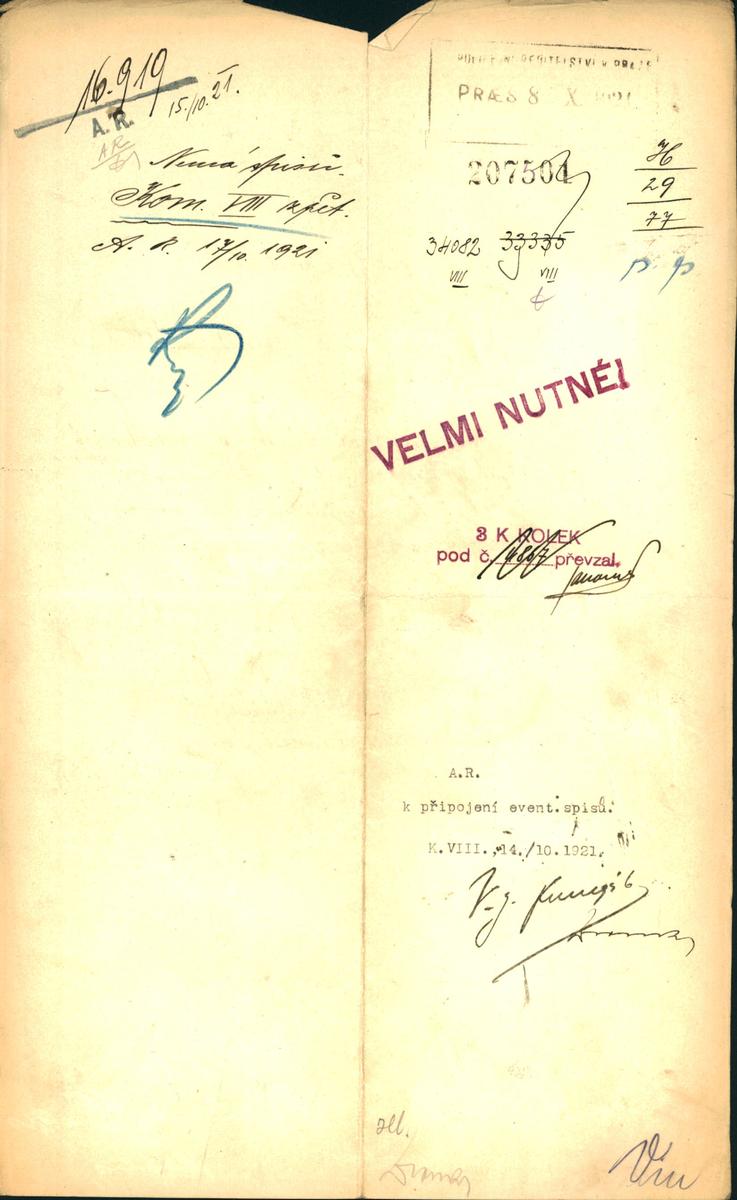 16.919
15./10. 21.
A. R.
A R
Nemá spisů.
Kom. VIII zpět.
A. R. 17/10. 1921
POLICEJNÍ ŘEDITELSTVÍ V PRAZE
PRÆS 8 X 1921
207504
H
29
77
34082 33335
VIII VIII
VELMI NUTNÉ!
3 K KOLEK
pod č. převzal.
A.R.
k připojení event.spisů.
K.VIII.,14./10.1921.